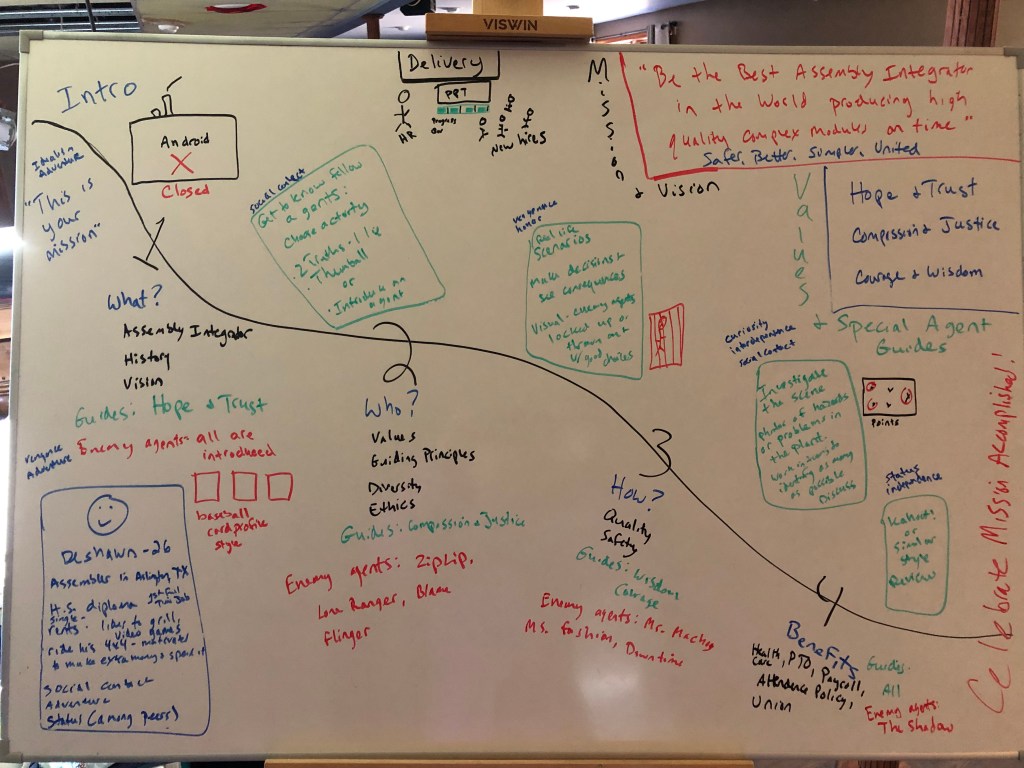 VISWIN
Intro
Android
X
Closed
"This is
your
mission"
Delivery
PPT
Progress
Bar
HR
New hires
Mission
& Vision
"Be the Best Assembly Integrator
in the World producing high
quality complex modules on time"
Safer, Better, Simpler, United
Values
Hope & Trust
Compassion & Justice
Courage & Wisdom
& Special Agent
Guides
social contact
Get to know fellow
agents:
Choose activity
2 Truths - 1 lie
Thumball
or
Introduce an
agent
vengeance
honor
Real life
Scenarios
Make decisions &
see consequences
Visual - enemy agents
locked up or
thrown out
w/ good choices
1
What?
Assembly Integrator
History
Vision
Guides: Hope & Trust
Enemy agents - all are
introduced
baseball
card profile
style
vengeance
Adventure
Deshawn - 26
Assembler in Arlington TX
H.S. diploma 1st Full
Time Job
single -
rents - likes to grill,
video games
ride his 4x4 - motivated
to make extra money & spend it
Social contact
Adventure
Status (among peers)
2
Who?
Values
Guiding Principles
Diversity
Ethics
Guides: Compassion & Justice
Enemy agents: ZipLip,
Lone Ranger, Blame
Flinger
3
How?
Quality
Safety
Guides: Wisdom
Courage
Enemy agents: Mr.
Ms. Fashion, Downtime
curiosity
interdependence
social contact
Investigate
the scene
photos of hazards
or problems in
the plant.
work individually
identify as many
as possible
Discuss
Points
Status
independence
Kahoot!
or
similar
style
Review
4
Benefits
Health, PTO, Payroll,
care
Attendance Policy,
Union
Guides -
All
Enemy agents:
The Shadow
Celebrate Mission Accomplished!